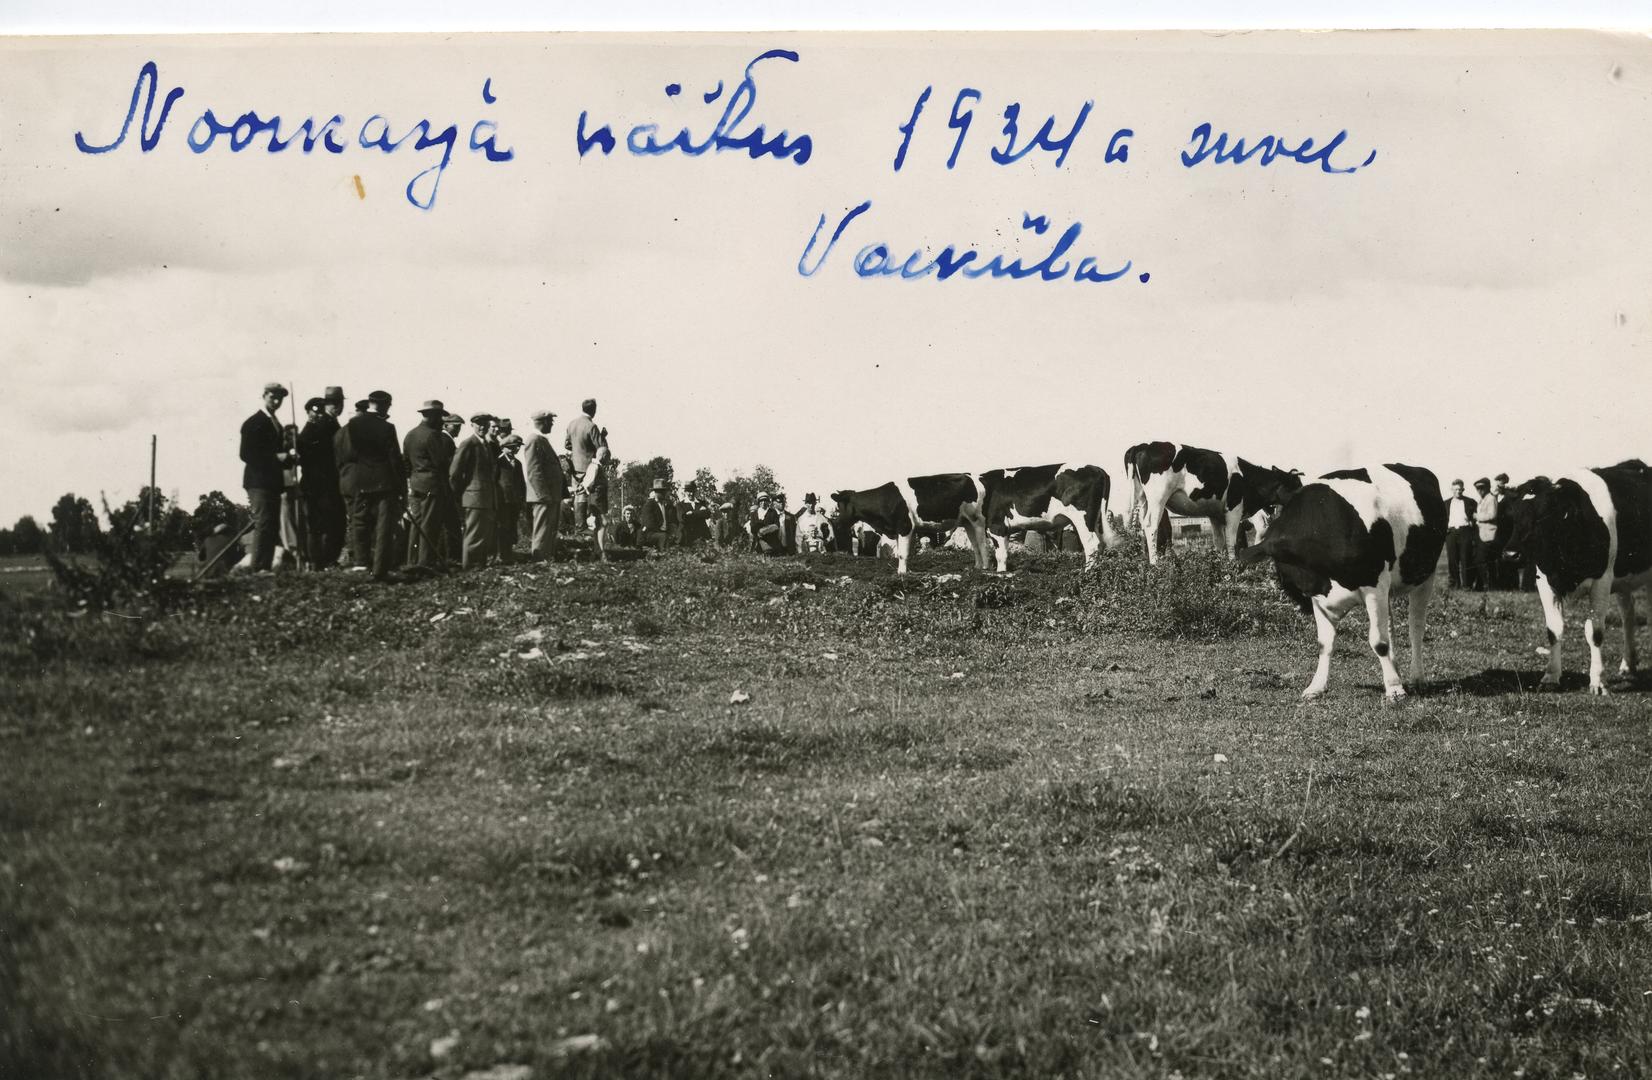 Noorkarja näitus 1934 a suvel
Vaeküla.